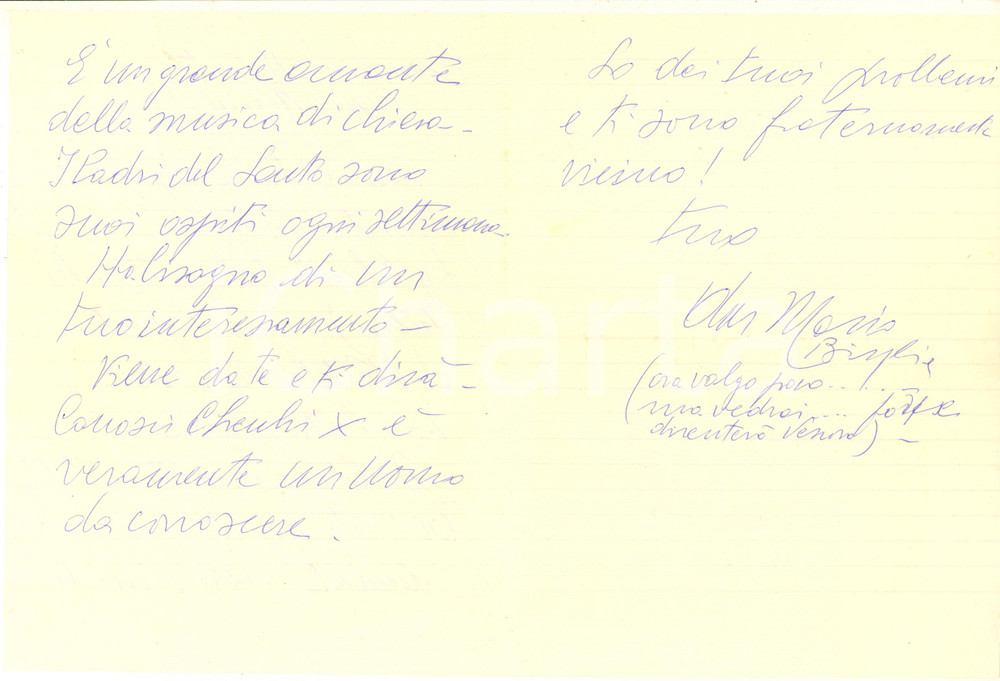 È un grande amante
della musica di chiesa -
I Padri del Santo sono
suoi ospiti ogni settimana -
Ha bisogno di un
tuo interessamento -
Viene da te e ti dirà -
Conosci x è
veramente un uomo
da conoscere .
So dei tuoi problemi
e ti sono fraternamente
vicino !
tuo
Don Mario
(ora valgo poco .. . ..
ma vedrai .... forse
diventerò Vescovo) -
iCharta